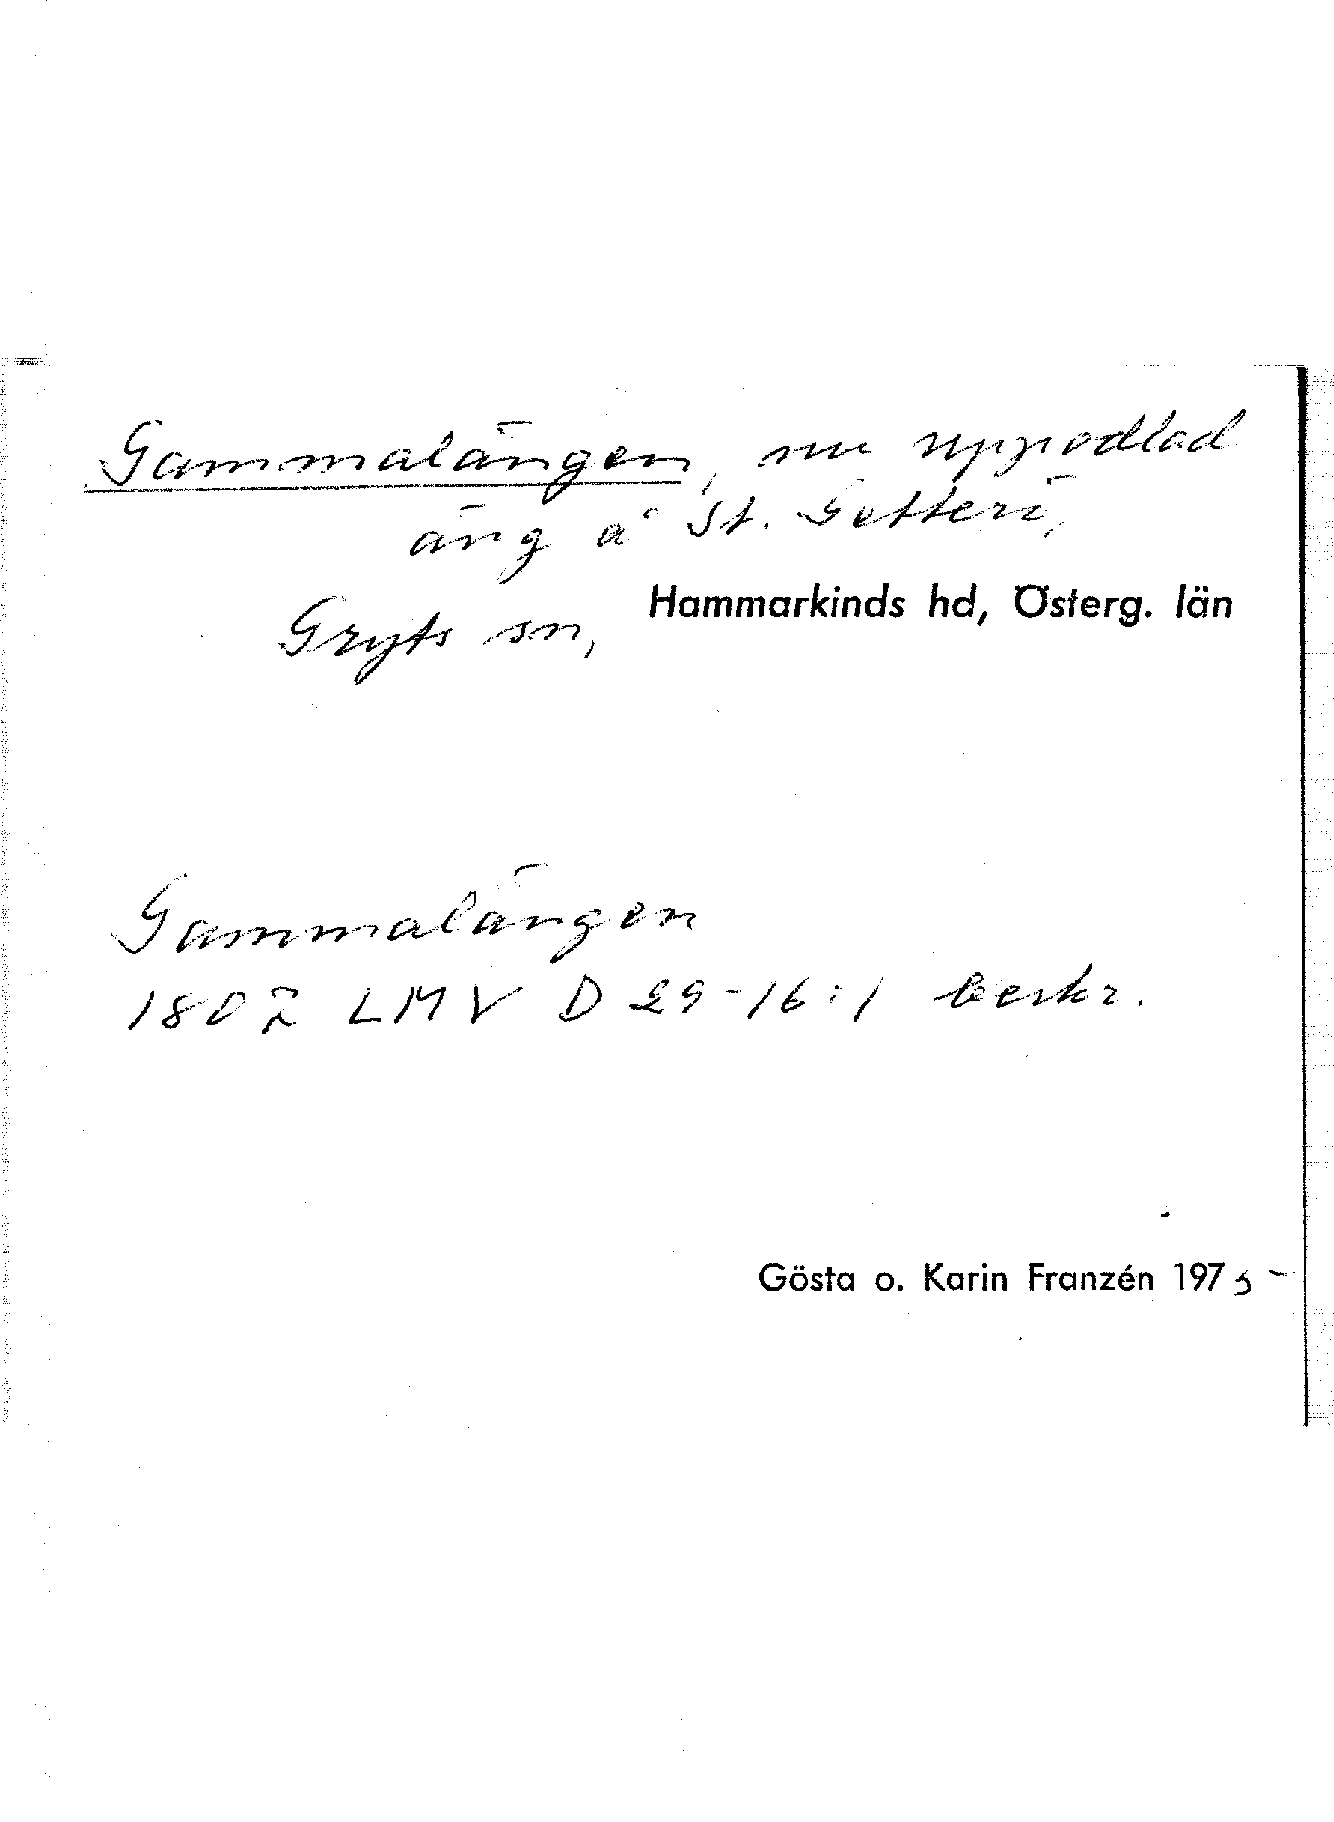 Gammalängen, nu uppodlad
äng å St. Getterö,
Gryts sn, Hammarkinds hd, Österg. län
Gammalängen
1807 LMV D 29-16:1 beskr.
Gösta o. Karin Franzén 1975